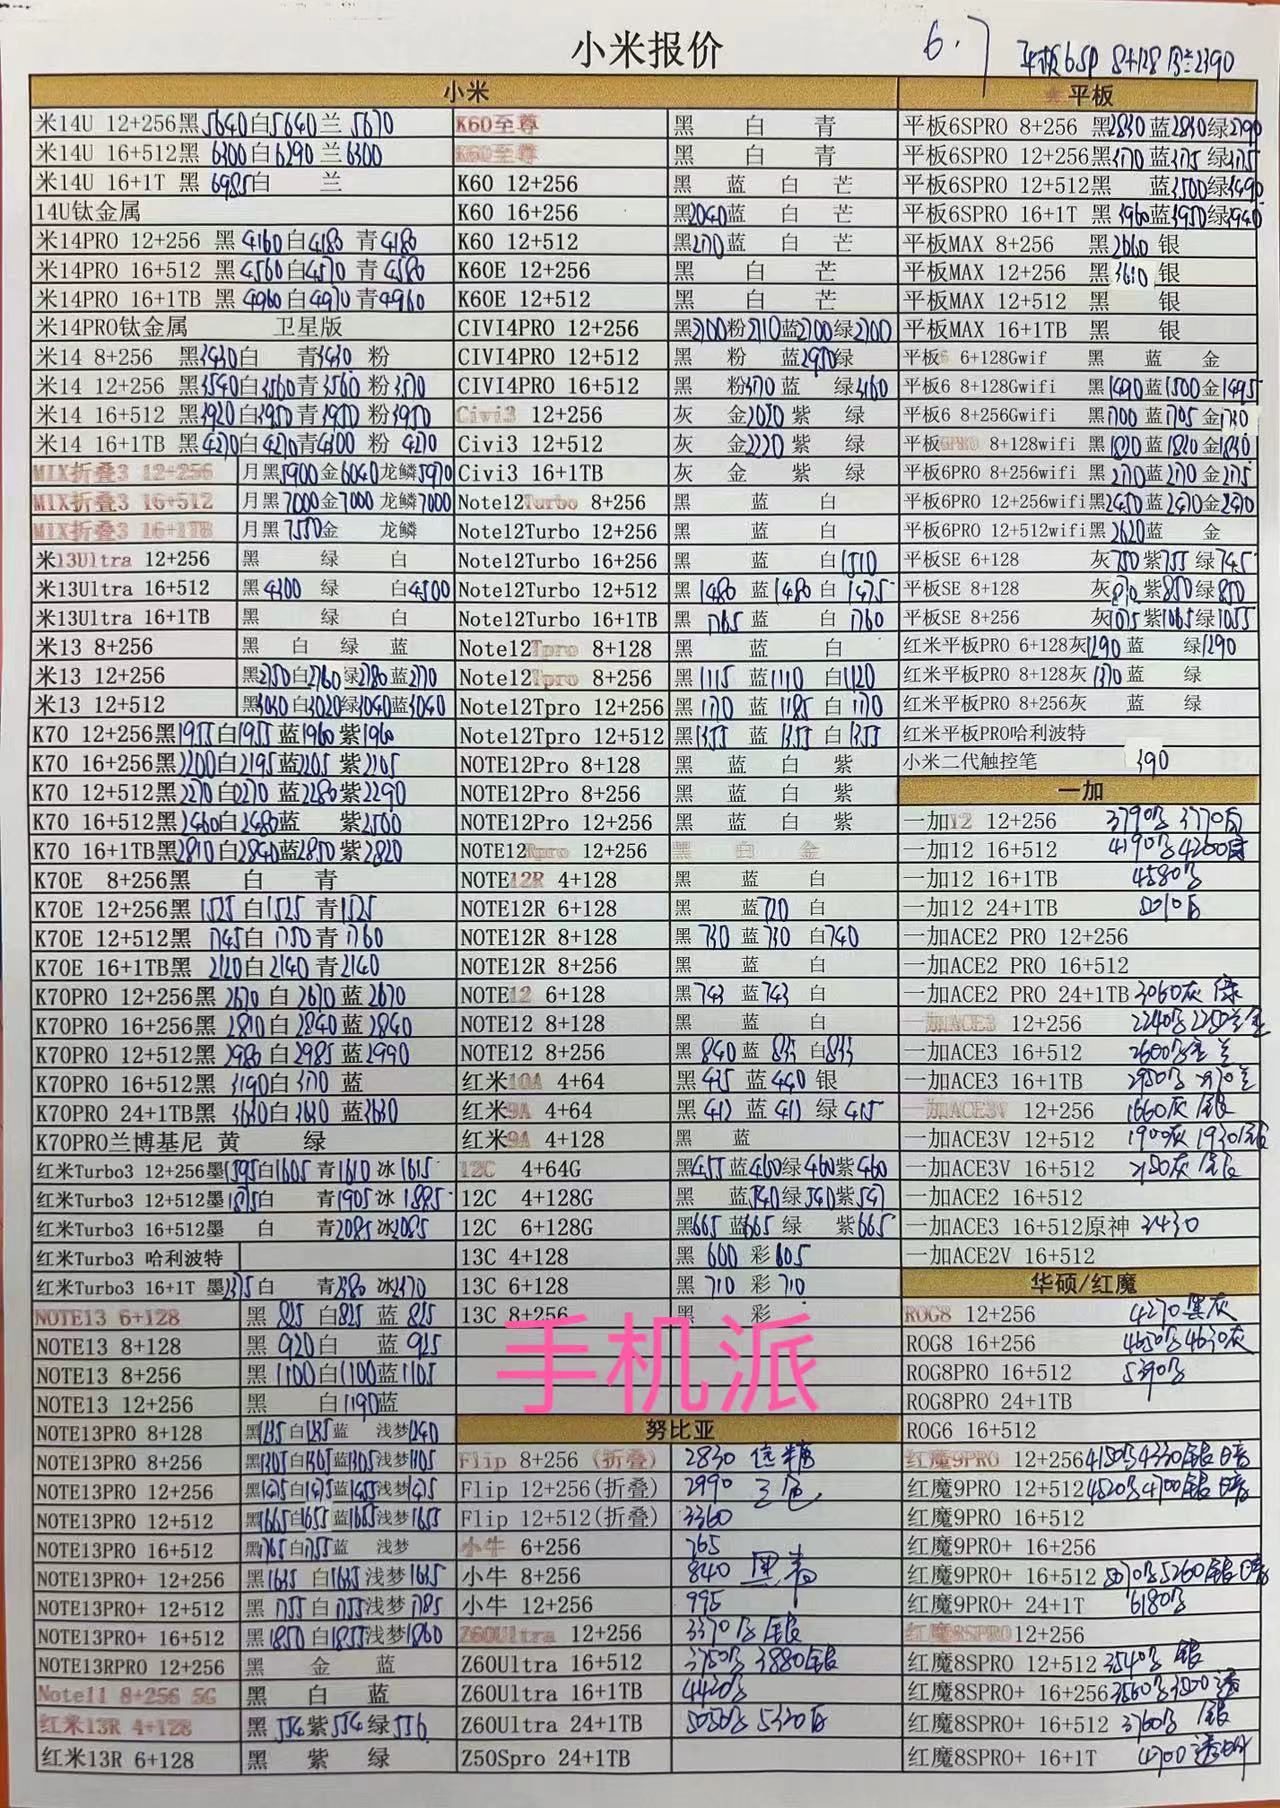 小米报价
6.7
平板6SP 8+128
小米
米14U 12+256黑5640白5640兰 5670
米14U 16+512黑 6300白6290 兰6300
米14U 16+1T 黑 6985白 兰
14U钛金属
米14PRO 12+256 黑4160白4180 青4180
米14PRO 16+512 黑4560白4570 青4580
米14PRO 16+1TB 黑4960白4970青4960
米14PRO钛金属 卫星版
米14 8+256 黑3430白 青3430 粉
米14 12+256 黑3540白3560青3560 粉3570
米14 16+512 黑3920白3950青3950 粉3950
米14 16+1TB 黑4270白4270青4300 粉 4270
MIX折叠3 12+256 月黑5900金6040龙鳞5970
MIX折叠3 16+512 月黑7000金7000龙鳞7000
MIX折叠3 16+1TB 月黑7550金 龙鳞
米13Ultra 12+256 黑 绿 白
米13Ultra 16+512 黑4300 绿 白4500
米13Ultra 16+1TB 黑 绿 白
米13 8+256 黑 白 绿 蓝
米13 12+256 黑2750白2760绿2780蓝2770
米13 12+512 黑3030白3020绿3040蓝3040
K70 12+256黑1955白1955蓝1960紫1960
K70 16+256黑2200白2195蓝2205紫2205
K70 12+512黑2270白2270蓝2280紫2290
K70 16+512黑2460白2480蓝 紫2500
K70 16+1TB黑2810白2840蓝2850紫2820
K70E 8+256黑 白 青
K70E 12+256黑 1525 白1525 青1525
K70E 12+512黑 1745白1750青1760
K70E 16+1TB黑 2120白2140青2140
K70PRO 12+256黑 2670 白2670蓝2670
K70PRO 16+256黑 2810白2840蓝2840
K70PRO 12+512黑 2980白2985蓝2990
K70PRO 16+512黑 3190白3170 蓝
K70PRO 24+1TB黑 3630白3630 蓝3630
K70PRO兰博基尼 黄 绿
红米Turbo3 12+256墨1595白1605 青1610 冰1615
红米Turbo3 12+512墨1875白 青1905冰1885
红米Turbo3 16+512墨 白 青2085冰2085
红米Turbo3 哈利波特
红米Turbo3 16+1T 墨2375白 青2380冰2370
NOTE13 6+128 黑 825 白825 蓝 825
NOTE13 8+128 黑 920白 蓝 925
NOTE13 8+256 黑1100白1100蓝1105
NOTE13 12+256 黑 白1190蓝
NOTE13PRO 8+128 黑1235白1235蓝 浅梦1240
NOTE13PRO 8+256 黑1305白1305蓝1305浅梦1305
NOTE13PRO 12+256 黑1475白1475蓝1455浅梦1475
NOTE13PRO 12+512 黑1665白1655蓝1665浅梦1655
NOTE13PRO 16+512 黑1765白1755蓝 浅梦
NOTE13PRO+ 12+256 黑1635 白1635浅梦1635
NOTE13PRO+ 12+512 黑1755白1755浅梦1785
NOTE13PRO+ 16+512 黑1850白1855浅梦1860
NOTE13RPRO 12+256 黑 金 蓝
Note11 8+256 5G 黑 白 蓝
红米13R 4+128 黑554紫554绿556
红米13R 6+128 黑 紫 绿
K60至尊 黑 白 青
K60至尊 黑 白 青
K60 12+256 黑 蓝 白 芒
K60 16+256 黑2040蓝 白 芒
K60 12+512 黑2170蓝 白 芒
K60E 12+256 黑 白 芒
K60E 12+512 黑 白 芒
CIVI4PRO 12+256 黑2700粉2710蓝2700绿2700
CIVI4PRO 12+512 黑 粉 蓝2950绿
CIVI4PRO 16+512 黑 粉3170蓝 绿3160
Civi3 12+256 灰 金2020紫 绿
Civi3 12+512 灰 金2220紫 绿
Civi3 16+1TB 灰 金 紫 绿
Note12Turbo 8+256 黑 蓝 白
Note12Turbo 12+256 黑 蓝 白
Note12Turbo 16+256 黑 蓝 白1510
Note12Turbo 12+512 黑1480 蓝1480 白 1475
Note12Turbo 16+1TB 黑 1765 蓝 白 1760
Note12Tpro 8+128 黑 蓝 白
Note12Tpro 8+256 黑1115 蓝1110 白1120
Note12Tpro 12+256 黑1170 蓝 1185 白 1170
Note12Tpro 12+512 黑1355 蓝 1355 白1355
NOTE12Pro 8+128 黑 蓝 白 紫
NOTE12Pro 8+256 黑 蓝 白 紫
NOTE12Pro 12+256 黑 蓝 白 紫
NOTE12Rpro 12+256 黑 白 金
NOTE12R 4+128 黑 蓝 白
NOTE12R 6+128 黑 蓝720 白
NOTE12R 8+128 黑 730 蓝730 白740
NOTE12R 8+256 黑 蓝 白
NOTE12 6+128 黑743 蓝743 白
NOTE12 8+128 黑 蓝 白
NOTE12 8+256 黑840 蓝833 白833
红米10A 4+64 黑435 蓝440 银
红米9A 4+64 黑412 蓝 411 绿415
红米9A 4+128 黑 蓝
12C 4+64G 黑455蓝460绿460紫460
12C 4+128G 黑 蓝540绿540紫541
12C 6+128G 黑665 蓝665 绿 紫665
13C 4+128 黑 600 彩605
13C 6+128 黑 710 彩710
13C 8+256 黑 彩
手机派
努比亚
Flip 8+256 (折叠) 2830
Flip 12+256(折叠) 2990 三色
Flip 12+512(折叠) 3360
小牛 6+256 765
小牛 8+256 840 黑青
小牛 12+256 995
Z60Ultra 12+256 3370 银
Z60Ultra 16+512 3750 3880银
Z60Ultra 16+1TB 4420
Z60Ultra 24+1TB 5050 5320
Z50Spro 24+1TB
平板
平板6SPRO 8+256 黑2830蓝2830绿2790
平板6SPRO 12+256黑3170蓝3175绿3175
平板6SPRO 12+512黑 蓝3500绿3490
平板6SPRO 16+1T 黑3960蓝3950绿3940
平板MAX 8+256 黑2660 银
平板MAX 12+256 黑3610 银
平板MAX 12+512 黑 银
平板MAX 16+1TB 黑 银
平板6 6+128Gwif 黑 蓝 金
平板6 8+128Gwifi 黑1490蓝1500金1495
平板6 8+256Gwifi 黑1700 蓝1705 金1730
平板6PRO 8+128wifi 黑1820蓝1820金1830
平板6PRO 8+256wifi 黑2170蓝2170金2175
平板6PRO 12+256wifi黑2450蓝2470金2470
平板6PRO 12+512wifi黑2620蓝 金
平板SE 6+128 灰750紫755 绿745
平板SE 8+128 灰870紫850绿850
平板SE 8+256 灰1075紫1065绿1055
红米平板PRO 6+128灰1290 蓝 绿1290
红米平板PRO 8+128灰1370 蓝 绿
红米平板PRO 8+256灰 蓝 绿
红米平板PRO哈利波特
小米二代触控笔 390
一加
一加12 12+256 3790 3770白
一加12 16+512 4190 4200
一加12 16+1TB 4580
一加12 24+1TB 5010白
一加ACE2 PRO 12+256
一加ACE2 PRO 16+512
一加ACE2 PRO 24+1TB 3060灰 绿
一加ACE3 12+256 2240 2250
一加ACE3 16+512 2600
一加ACE3 16+1TB 2950
一加ACE3V 12+256 1660灰 银
一加ACE3V 12+512 1900灰 1930银
一加ACE3V 16+512 2150灰 银
一加ACE2 16+512
一加ACE3 16+512原神 3430
一加ACE2V 16+512
华硕/红魔
ROG8 12+256 4270黑灰
ROG8 16+256 4650 4630灰
ROG8PRO 16+512 5390
ROG8PRO 24+1TB
ROG6 16+512
红魔9PRO 12+256 4150 4330银 暗
红魔9PRO 12+512 4520 4700银 暗
红魔9PRO 16+512
红魔9PRO+ 16+256
红魔9PRO+ 16+512 5070 5260银 暗
红魔9PRO+ 24+1T 6180
红魔8SPRO12+256
红魔8SPRO 12+512 3540 银
红魔8SPRO+ 16+256 3560 3500透
红魔8SPRO+ 16+512 3760 银
红魔8SPRO+ 16+1T 4700透明